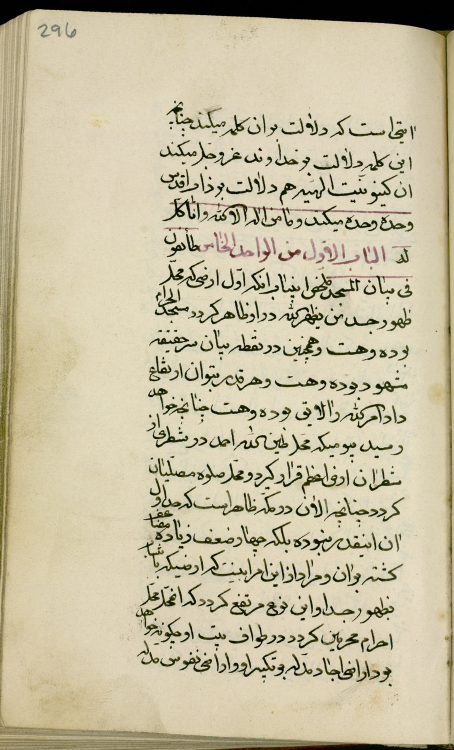 296
است که دلالت بر ان کلمه میکند چنانچه
این کلمه دلالت بر خداوند عز و جل میکند
ان کینونیت الهیه هم دلالت بر ذات اقدس
وحده وحده میکند و ما من اله الا الله و انا کل
له الباب الاول من الواحد الخامس
فی بیان المسجد ملخص این باب انکه اول ارضی که محل
ظهور جسد من یظهره الله در او ظاهر گردد مسجد الحرام
بوده و هست و همچنین در نقطه بیان
مشهود بوده و هست و هر قدر بتوان ارتفاع
داد امر الله را لایق بوده و هست چنانچه خواهد
رسید یومیکه محل
شطر ان ارفع اعظم قرار گیرد و محل صلوة مصلیان
گردد چنانچه الان در مکه ظاهر است که حد اول
ان اینقدر نبوده بلکه چهار ضعف زیاده
گشته بر ان و مراد از این امر اینست که ارضیکه
بظهور جسد او این نوع مرتفع گردد که محل
احرام محرمین گردد در طواف بیت او چگونه خواهد
بود اراضی اجساد مدله بر او و اراضی نفوس مدله